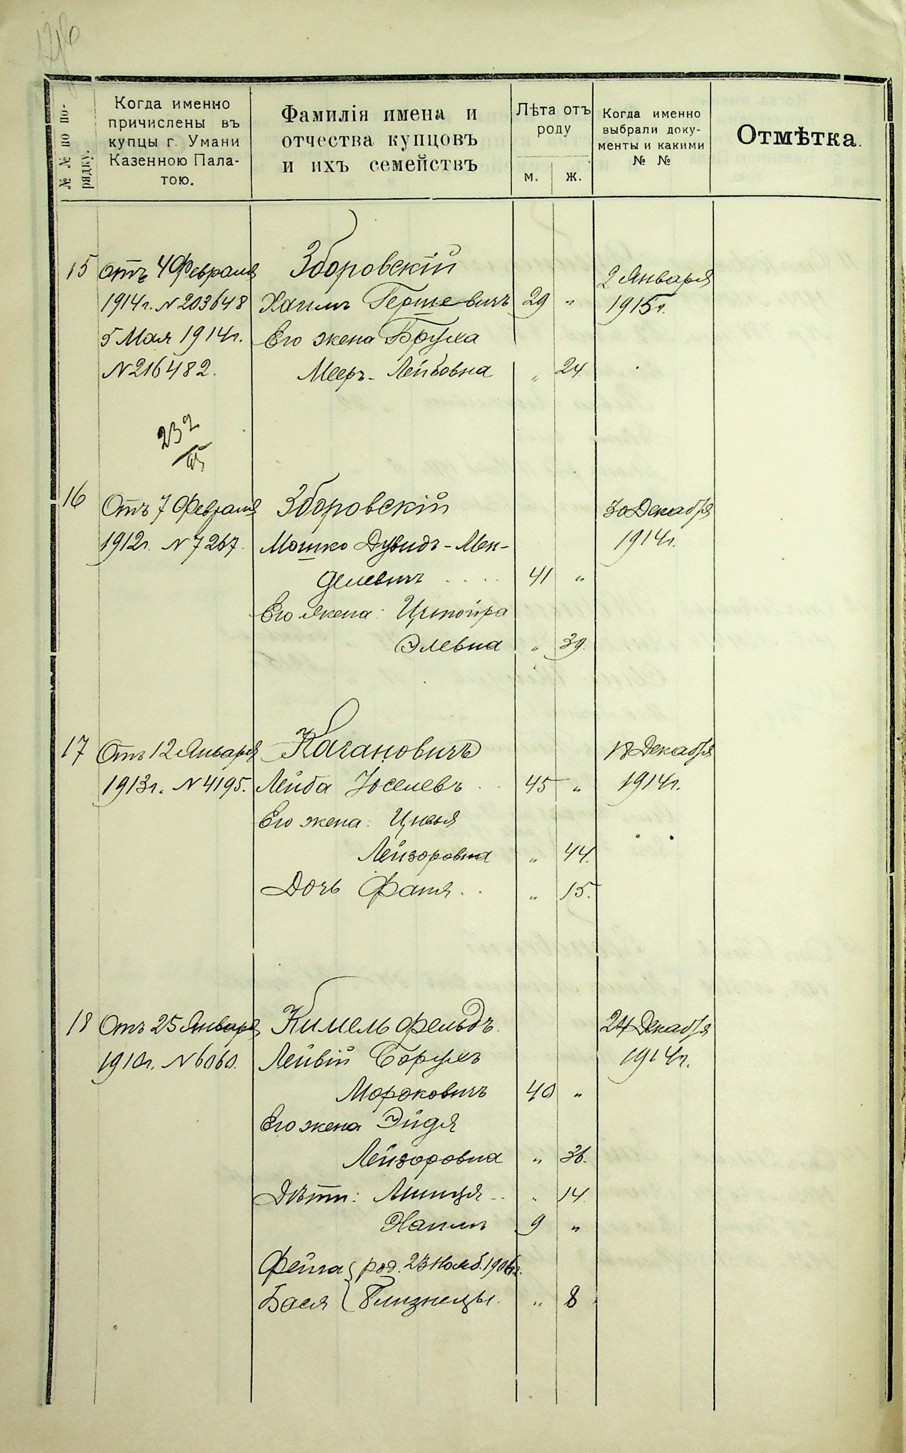 № № по по-
рядку.
Когда именно
причислены въ
купцы г. Умани
Казенною Пала-
тою.
Фамилія имена и
отчества купцовъ
и ихъ семействъ
Лѣта отъ
роду
м. ж.
Когда именно
выбрали доку-
менты и какими
№ №
Отмѣтка.
15 Отъ 4 Февраля Зборовскій 2 Января
1914г. N 203648 Хаимъ Гершевичъ 29 " 1915г.
5 Мая 1914г. Его жена Брума
N 216482. Мееръ-Лейбовна " 24
232
16 Отъ 7 Февраля Зборовскій 30 Декабря
1912г. N 7267 Мошко Дувидъ-Мен- 1914г.
делевичъ 41 "
Его жена: Ципойра
Элевна " 39.
17 Отъ 12 Января Кагановичъ 18 Декабря
1913г. N 4195. Лейба Іоселевъ 45 " 1914г.
Его жена: Цивья
Лейзоровна " 44.
Дочь Фаня " 15.
18 Отъ 25 Января Кимельфельдъ 24 Декабря
1910г. N 6060. Лейвій Борухъ 1914г.
Мордковичъ 40 "
Его жена Эйдя
Лейзоровна " 36.
Дѣти: " 14
Хаимъ 9 "
Фейга { род. 23 Нояб. 1906г.
Бася { Близнецы. " 8.